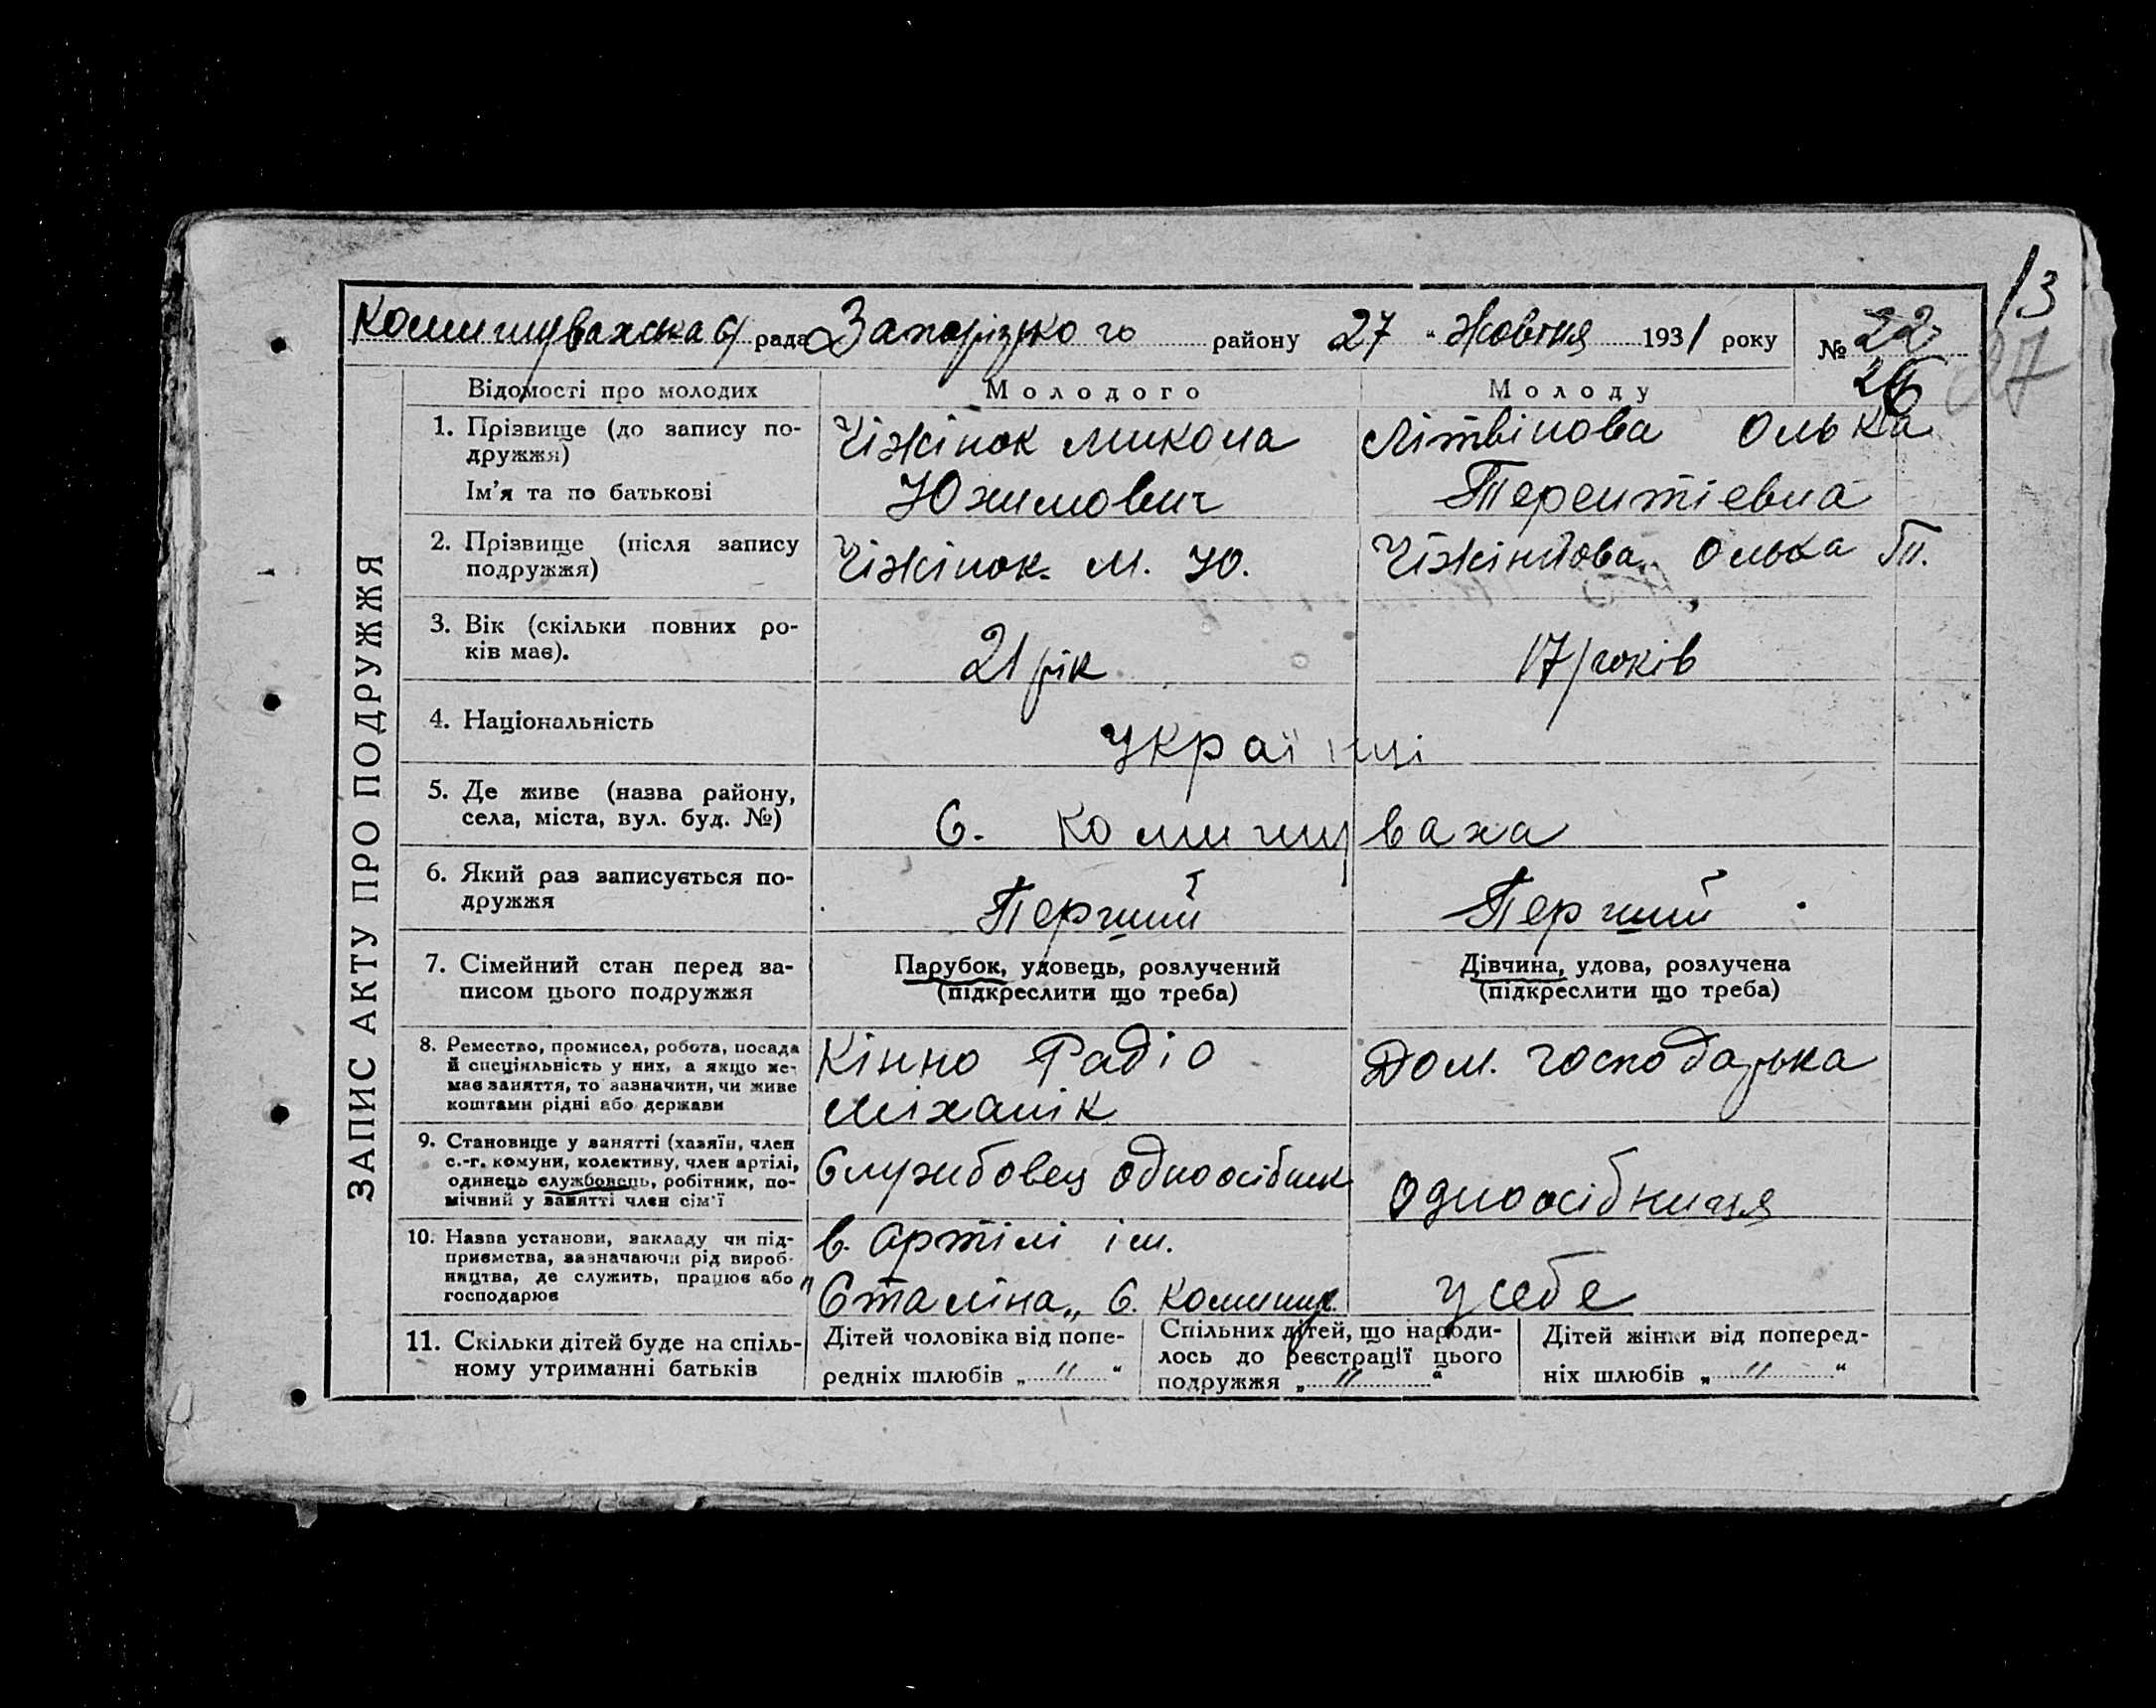 Комишувахська с/рада Запорізького району 27 " Жовтня 1931 року № 22
26
13
27
ЗАПИС АКТУ ПРО ПОДРУЖЖЯ
Відомості про молодих Молодого Молоду
1. Прізвище (до запису по-
дружжя)
Чіжінок Микола Літвінова Олька
Ім'я та по батькові Юхимович Терентіевна
2. Прізвище (після запису
подружжя)
Чіжінок. М. Ю. Олька Т.
3. Вік (скільки повних ро-
ків має).
21 рік 17 років
4. Національність
українці
5. Де живе (назва району,
села, міста, вул. буд. №)
С. Комишуваха
6. Який раз записується по-
дружжя
Перший Перший
7. Сімейний стан перед за-
писом цього подружжя
Парубок, удовець, розлучений
(підкреслити що треба)
Дівчина, удова, розлучена
(підкреслити що треба)
8. Ремество, промисел, робота, посада
й спеціяльність у них, а якщо не-
має заняття, то зазначити, чи живе
коштами рідні або держави
Кінно Радіо
Міханік
Дом. господарька
9. Становище у занятті (хазяїн, член
с.-г. комуни, колективу, член артілі,
одинець службовець, робітник, по-
мічний у занятті член сім'ї
Службовец одноосібник
Одноосібниця
10. Назва установи, закладу чи під-
приємства, зазначаючи рід вироб-
ництва, де служить, працює або
господарює
в. Артілі ім.
"Сталіна„ С. Комишув.
у себе
11. Скільки дітей буде на спіль-
ному утриманні батьків
Дітей чоловіка від попе-
редніх шлюбів „ " “
Спільних дітей, що народи-
лось до реєстрації цього
подружжя „ " “
Дітей жінки від поперед-
ніх шлюбів „ " “